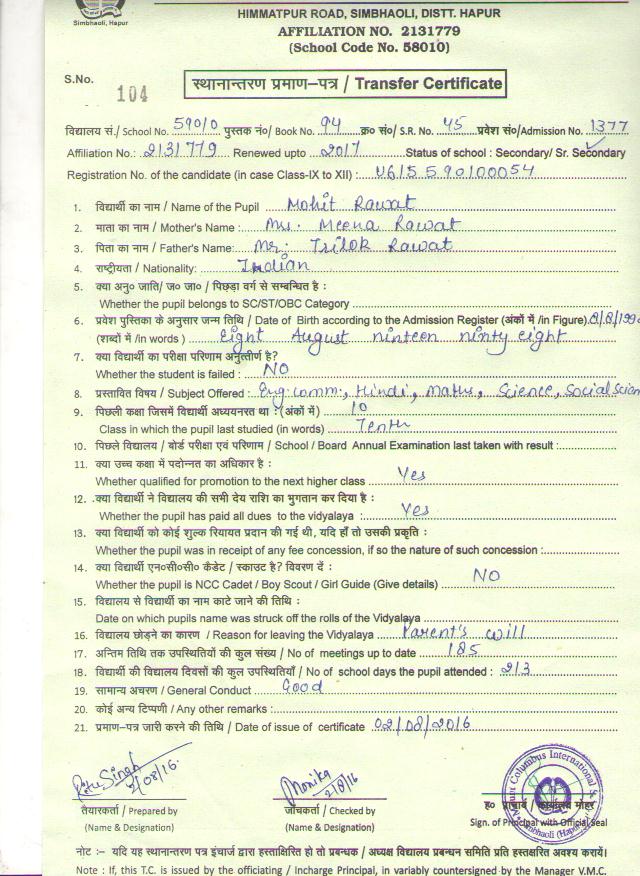 Simbhaoli, Hapur
HIMMATPUR ROAD, SIMBHAOLI, DISTT. HAPUR
AFFILIATION NO. 2131779
(School Code No. 58010)
S.No. 104
स्थानान्तरण प्रमाण-पत्र / Transfer Certificate
विद्यालय सं./ School No. 59010 पुस्तक नं०/ Book No. 94 क्र० सं०/ S.R. No. 45 प्रवेश सं०/Admission No. 1377
Affiliation No.: 2131779 Renewed upto 2017 Status of school : Secondary/ Sr. Secondary
Registration No. of the candidate (in case Class-IX to XII) : U615590100054
1. विद्यार्थी का नाम / Name of the Pupil Mohit Rawat
2. माता का नाम / Mother's Name : Mrs. Meena Rawat
3. पिता का नाम / Father's Name: Mr. Trilok Rawat
4. राष्ट्रीयता / Nationality: Indian
5. क्या अनु० जाति/ ज० जा० / पिछड़ा वर्ग से सम्बन्धित है :
Whether the pupil belongs to SC/ST/OBC Category
6. प्रवेश पुस्तिका के अनुसार जन्म तिथि / Date of Birth according to the Admission Register (अंकों में /in Figure)
(शब्दों में /in words ) Eight August ninteen ninty eight
7. क्या विद्यार्थी का परीक्षा परिणाम अनुत्तीर्ण है?
Whether the student is failed : NO
8. प्रस्तावित विषय / Subject Offered : Eng. comm., Hindi, Maths, Science, Social Scien
9. पिछली कक्षा जिसमें विद्यार्थी अध्ययनरत था : (अंकों में ) 10
Class in which the pupil last studied (in words) Tenth
10. पिछले विद्यालय / बोर्ड परीक्षा एवं परिणाम / School / Board Annual Examination last taken with result :
11. क्या उच्च कक्षा में पदोन्नत का अधिकार है :
Whether qualified for promotion to the next higher class Yes
12. क्या विद्यार्थी ने विद्यालय की सभी देय राशि का भुगतान कर दिया है :
Whether the pupil has paid all dues to the vidyalaya : Yes
13. क्या विद्यार्थी को कोई शुल्क रियायत प्रदान की गई थी, यदि हाँ तो उसकी प्रकृति :
Whether the pupil was in receipt of any fee concession, if so the nature of such concession :
14. क्या विद्यार्थी एन०सी०सी० कैडेट / स्काउट है? विवरण दें :
Whether the pupil is NCC Cadet / Boy Scout / Girl Guide (Give details) NO
15. विद्यालय से विद्यार्थी का नाम काटे जाने की तिथि :
Date on which pupils name was struck off the rolls of the Vidyalaya
16. विद्यालय छोड़ने का कारण / Reason for leaving the Vidyalaya Parent's will
17. अन्तिम तिथि तक उपस्थितियों की कुल संख्य / No of meetings up to date 185
18. विद्यार्थी की विद्यालय दिवसों की कुल उपस्थितियाँ / No of school days the pupil attended : 213
19. सामान्य अचरण / General Conduct Good
20. कोई अन्य टिप्पणी / Any other remarks :
21. प्रमाण-पत्र जारी करने की तिथि / Date of issue of certificate 02/08/2016
2/08/16. Monika 2/8/16
Mount Columbus International S
Simbhaoli (Hapur)
तैयारकर्ता / Prepared by जाँचकर्ता / Checked by ह० प्राचार्य / कार्यालय मोहर
(Name & Designation) (Name & Designation) Sign. of Principal with Official Seal
नोट :– यदि यह स्थानान्तरण पत्र इंचार्ज द्वारा हस्ताक्षिरित हो तो प्रबन्धक / अध्यक्ष विद्यालय प्रबन्धन समिति प्रति हस्तक्षरित अवश्य करायें।
Note : If, this T.C. is issued by the officiating / Incharge Principal, in variably countersigned by the Manager V.M.C.